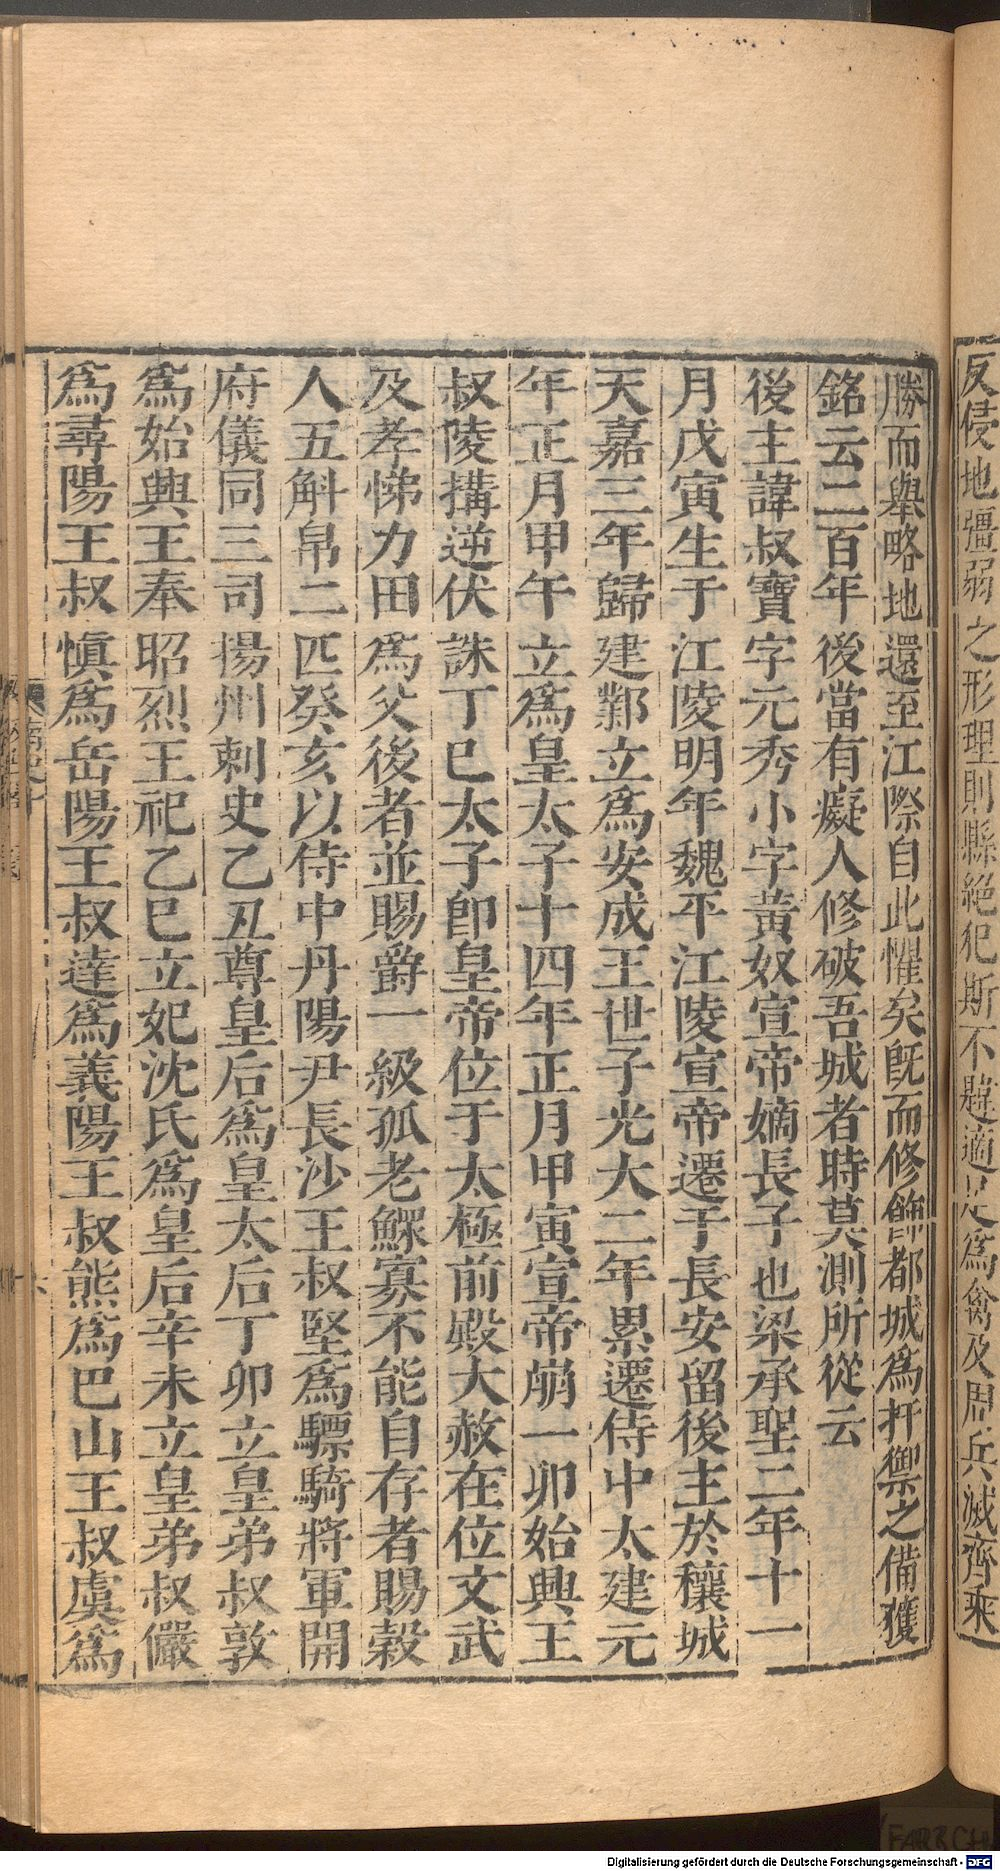 反侵地彊弱之形理則縣絕犯斯不韙適足爲禽及周兵滅齊乘
勝而舉略地還至江際自此懼矣旣而修飾都城爲扞禦之備獲
銘云二百年後當有癡人修破吾城者時莫測所從云
後主諱叔寶字元秀小字黃奴宣帝嫡長子也梁承聖二年十一
月戊寅生于江陵明年魏平江陵宣帝遷于長安留後主於穰城
天嘉三年歸建鄴立爲安成王世子光大二年累遷侍中太建元
年正月甲午立爲皇太子十四年正月甲寅宣帝崩一卯始興王
叔陵搆逆伏誅丁巳太子卽皇帝位于太極前殿大赦在位文武
及孝悌力田爲父後者並賜爵一級孤老鰥寡不能自存者賜穀
人五斛帛二匹癸亥以侍中丹陽尹長沙王叔堅爲驃騎將軍開
府儀同三司揚州刺史乙丑尊皇后爲皇太后丁卯立皇弟叔敦
爲始興王奉昭烈王祀乙巳立妃沈氏爲皇后辛未立皇弟叔儼
爲尋陽王叔愼爲岳陽王叔達爲義陽王叔熊爲巴山王叔虞爲
Digitalisierung gefördert durch die Deutsche Forschungsgemeinschaft - DFG